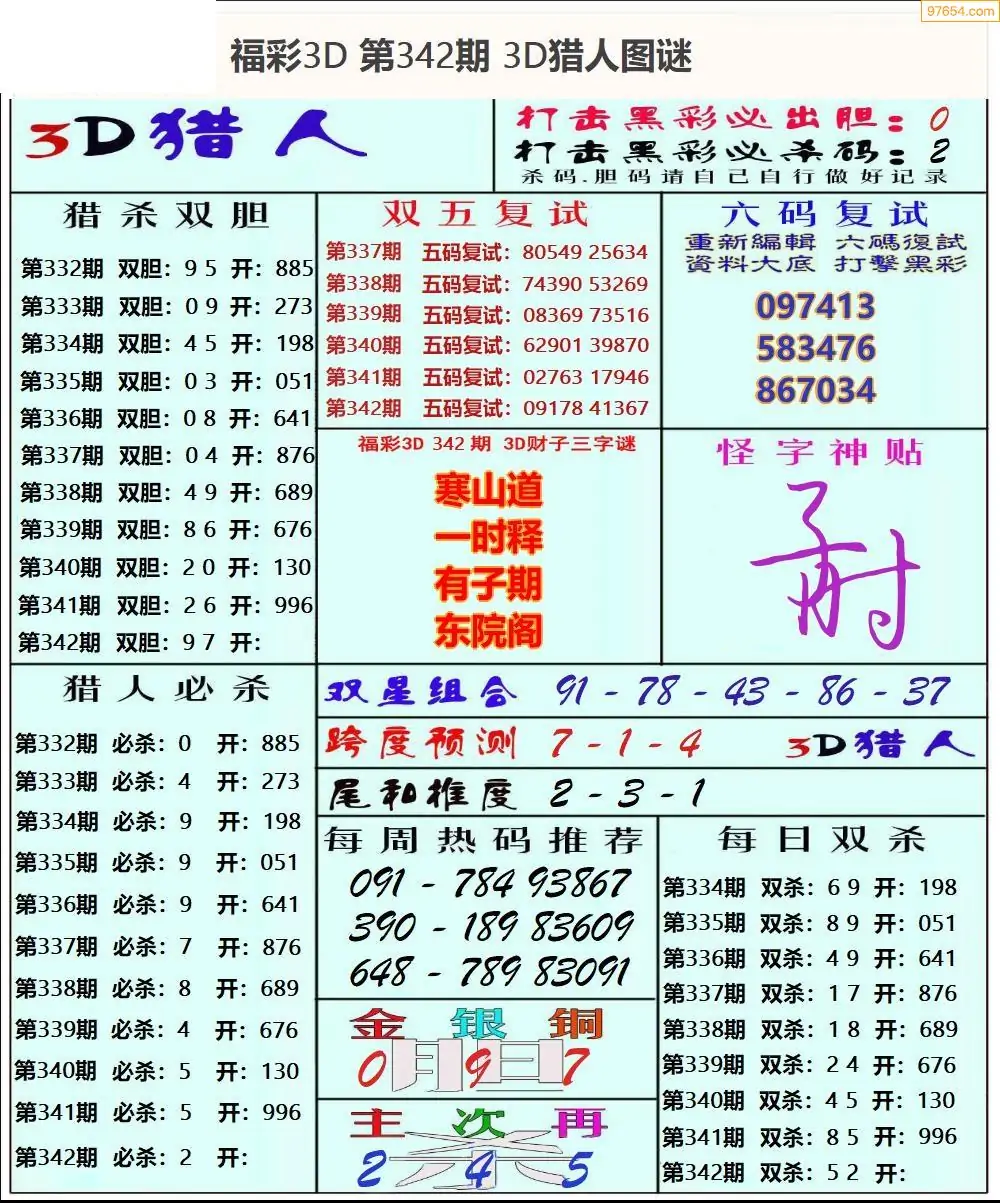 97654.com
福彩3D 第342期 3D猎人图谜
3D猎人
打击黑彩必出胆:0
打击黑彩必杀码:2
杀码.胆码请自己自行做好记录
猎杀双胆
第332期 双胆:9 5 开:885
第333期 双胆:0 9 开:273
第334期 双胆:4 5 开:198
第335期 双胆:0 3 开:051
第336期 双胆:0 8 开:641
第337期 双胆:0 4 开:876
第338期 双胆:4 9 开:689
第339期 双胆:8 6 开:676
第340期 双胆:2 0 开:130
第341期 双胆:2 6 开:996
第342期 双胆:9 7 开:
双五复试
第337期 五码复试:80549 25634
第338期 五码复试:74390 53269
第339期 五码复试:08369 73516
第340期 五码复试:62901 39870
第341期 五码复试:02763 17946
第342期 五码复试:09178 41367
六码复试
重新編輯 六碼復試
資料大底 打擊黑彩
097413
583476
867034
福彩3D 342 期 3D财子三字谜
寒山道
一时释
有子期
东院阁
怪字神贴
猎人必杀
第332期 必杀:0 开:885
第333期 必杀:4 开:273
第334期 必杀:9 开:198
第335期 必杀:9 开:051
第336期 必杀:9 开:641
第337期 必杀:7 开:876
第338期 必杀:8 开:689
第339期 必杀:4 开:676
第340期 必杀:5 开:130
第341期 必杀:5 开:996
第342期 必杀:2 开:
双星组合 91 - 78 - 43 - 86 - 37
跨度预测 7 - 1 - 4 3D猎人
尾和推度 2 - 3 - 1
每周热码推荐
091 - 784 93867
390 - 189 83609
648 - 789 83091
金 银 铜
胆
0 9 7
主 次 再
杀
2 4 5
每日双杀
第334期 双杀:6 9 开:198
第335期 双杀:8 9 开:051
第336期 双杀:4 9 开:641
第337期 双杀:1 7 开:876
第338期 双杀:1 8 开:689
第339期 双杀:2 4 开:676
第340期 双杀:4 5 开:130
第341期 双杀:8 5 开:996
第342期 双杀:5 2 开: